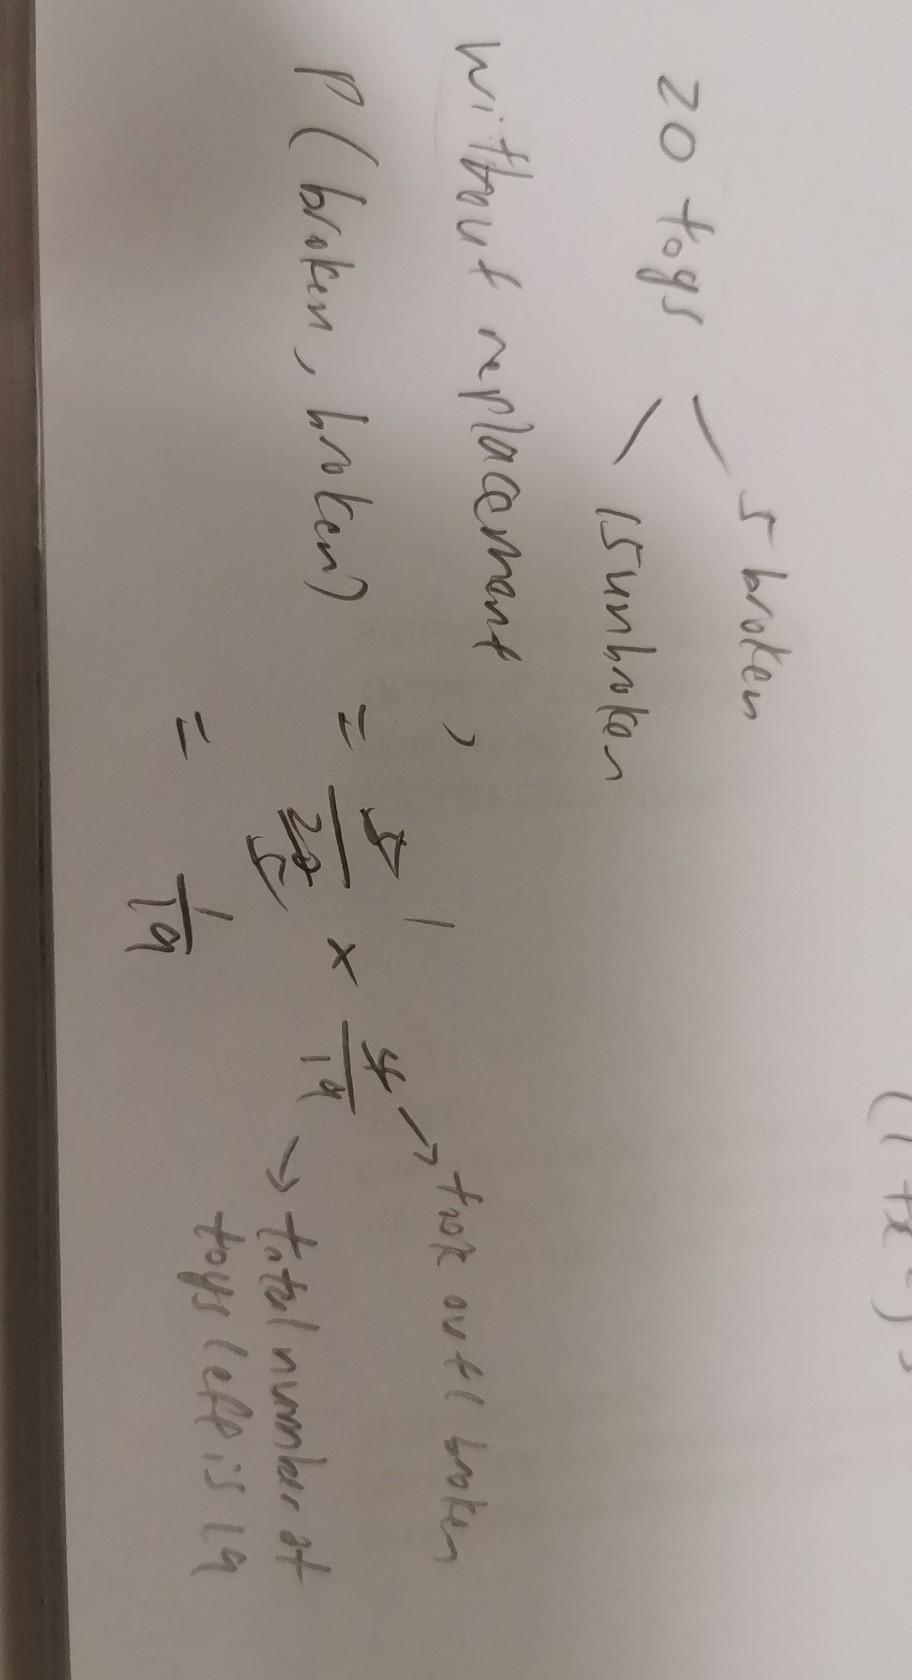 5 broken
20 toys <
15 unbroken
without replacement,
P(broken, broken) = 5/20 × 4/19
1
5
→ took out 1 broken
→ total number of
toys left is 19
= 1/19